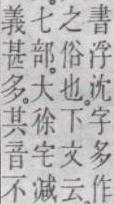 書浮沈字多作
之俗也。下文云
七部。大徐宅减
義甚多。其音不